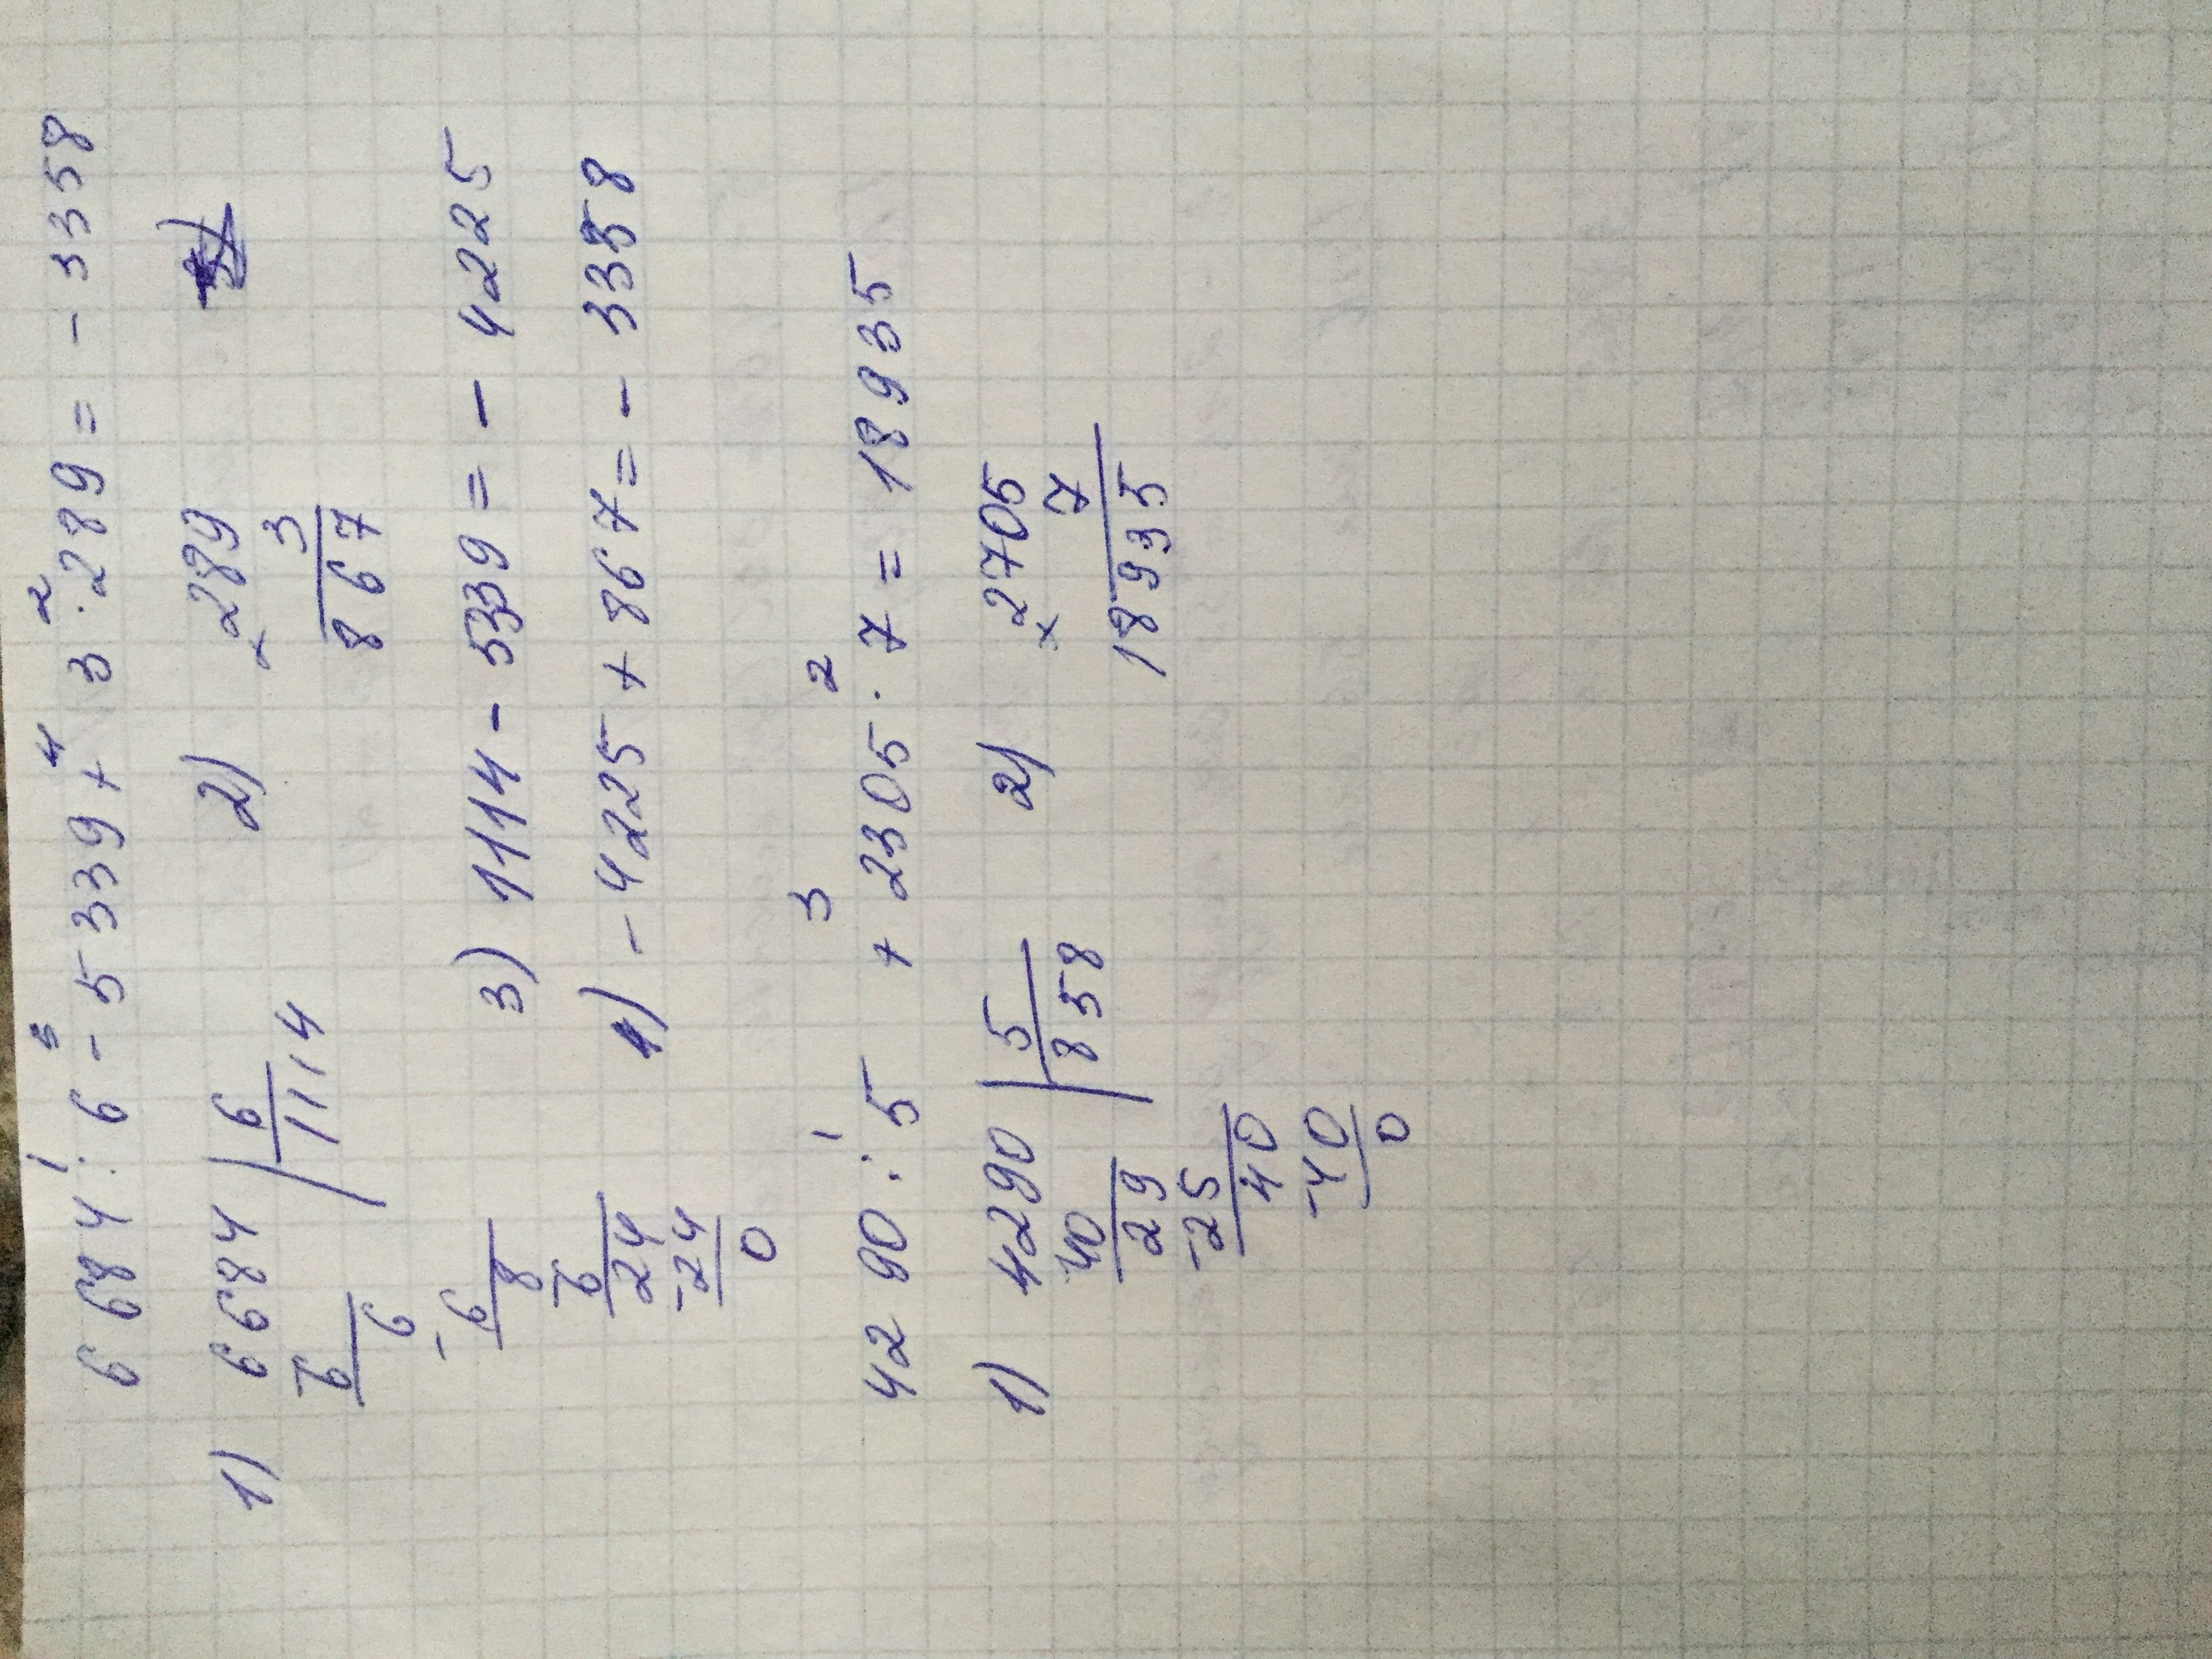 6684 : 6 - 5339 + 3 · 289 = - 3358
1) 6684 | 6
1114
- 6
6
- 6
8
- 6
24
- 24
0
2) × 289
3
867
3) 1114 - 5339 = - 4225
4) - 4225 + 867 = - 3358
4290 : 5 + 2305 · 7 = 18935
1 3 2
1) 4290 | 5
858
40
29
- 25
40
- 40
0
2) × 2705
7
18935